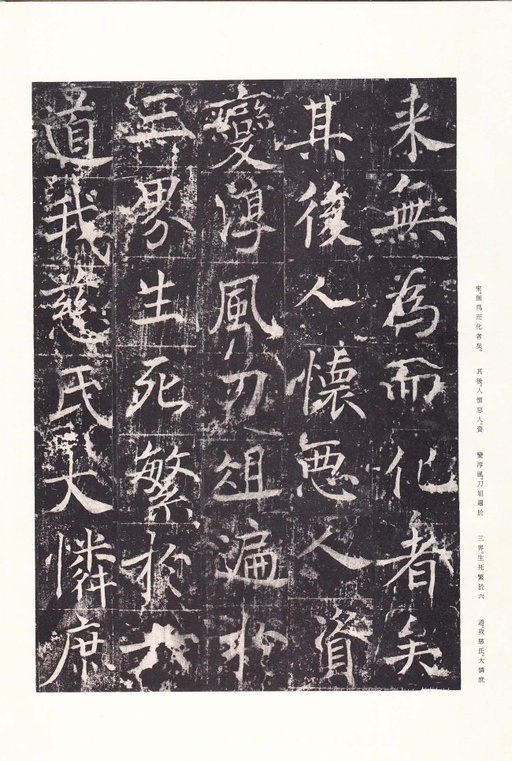 来無為而化者矣
其後人懷悪人資
變淳風刀俎遍於
三界生死繁於六
道我慈氏大憐庶
來，無爲而化者矣。 其後，人懷惡人，資 變淳風，刀俎遍於 三界。生死繁於六 道。我慈氏，大憐庶